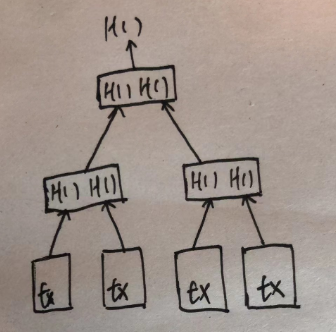 H()
H() H()
H() H() H() H()
tx tx tx tx